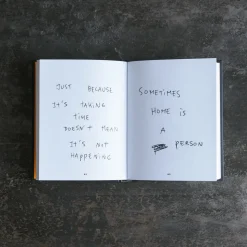 JUST BECAUSE
IT'S TAKING
TIME
DOESN'T MEAN
IT'S NOT
HAPPENING
SOMETIMES
HOME IS
A
PERSON